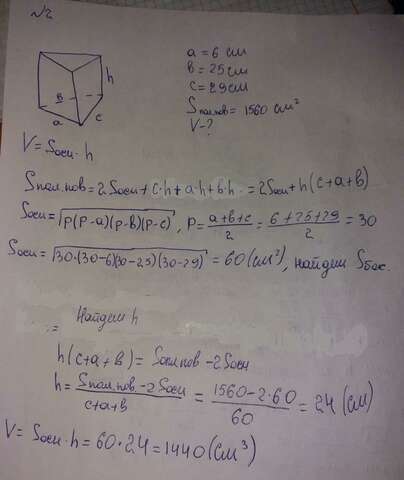 №2
a = 6 см
в = 25 см
c = 29 см
Sпол.пов = 1560 см²
V - ?
h
в
a
c
V = Sосн · h
Sпол.пов = 2Sосн + c·h + a·h + в·h = 2Sосн + h(c+a+в)
Sосн = √p(p-a)(p-в)(p-c), p = a+в+c/2 = 6+25+29/2 = 30
Sосн = √30·(30-6)(30-25)(30-29) = 60 (см²), найдем Sбок.
= Найдем h
h(c+a+в) = Sпол.пов - 2Sосн
h = Sпол.пов - 2Sосн/c+a+в = 1560-2·60/60 = 24 (см)
V = Sосн · h = 60·24 = 1440 (см³)